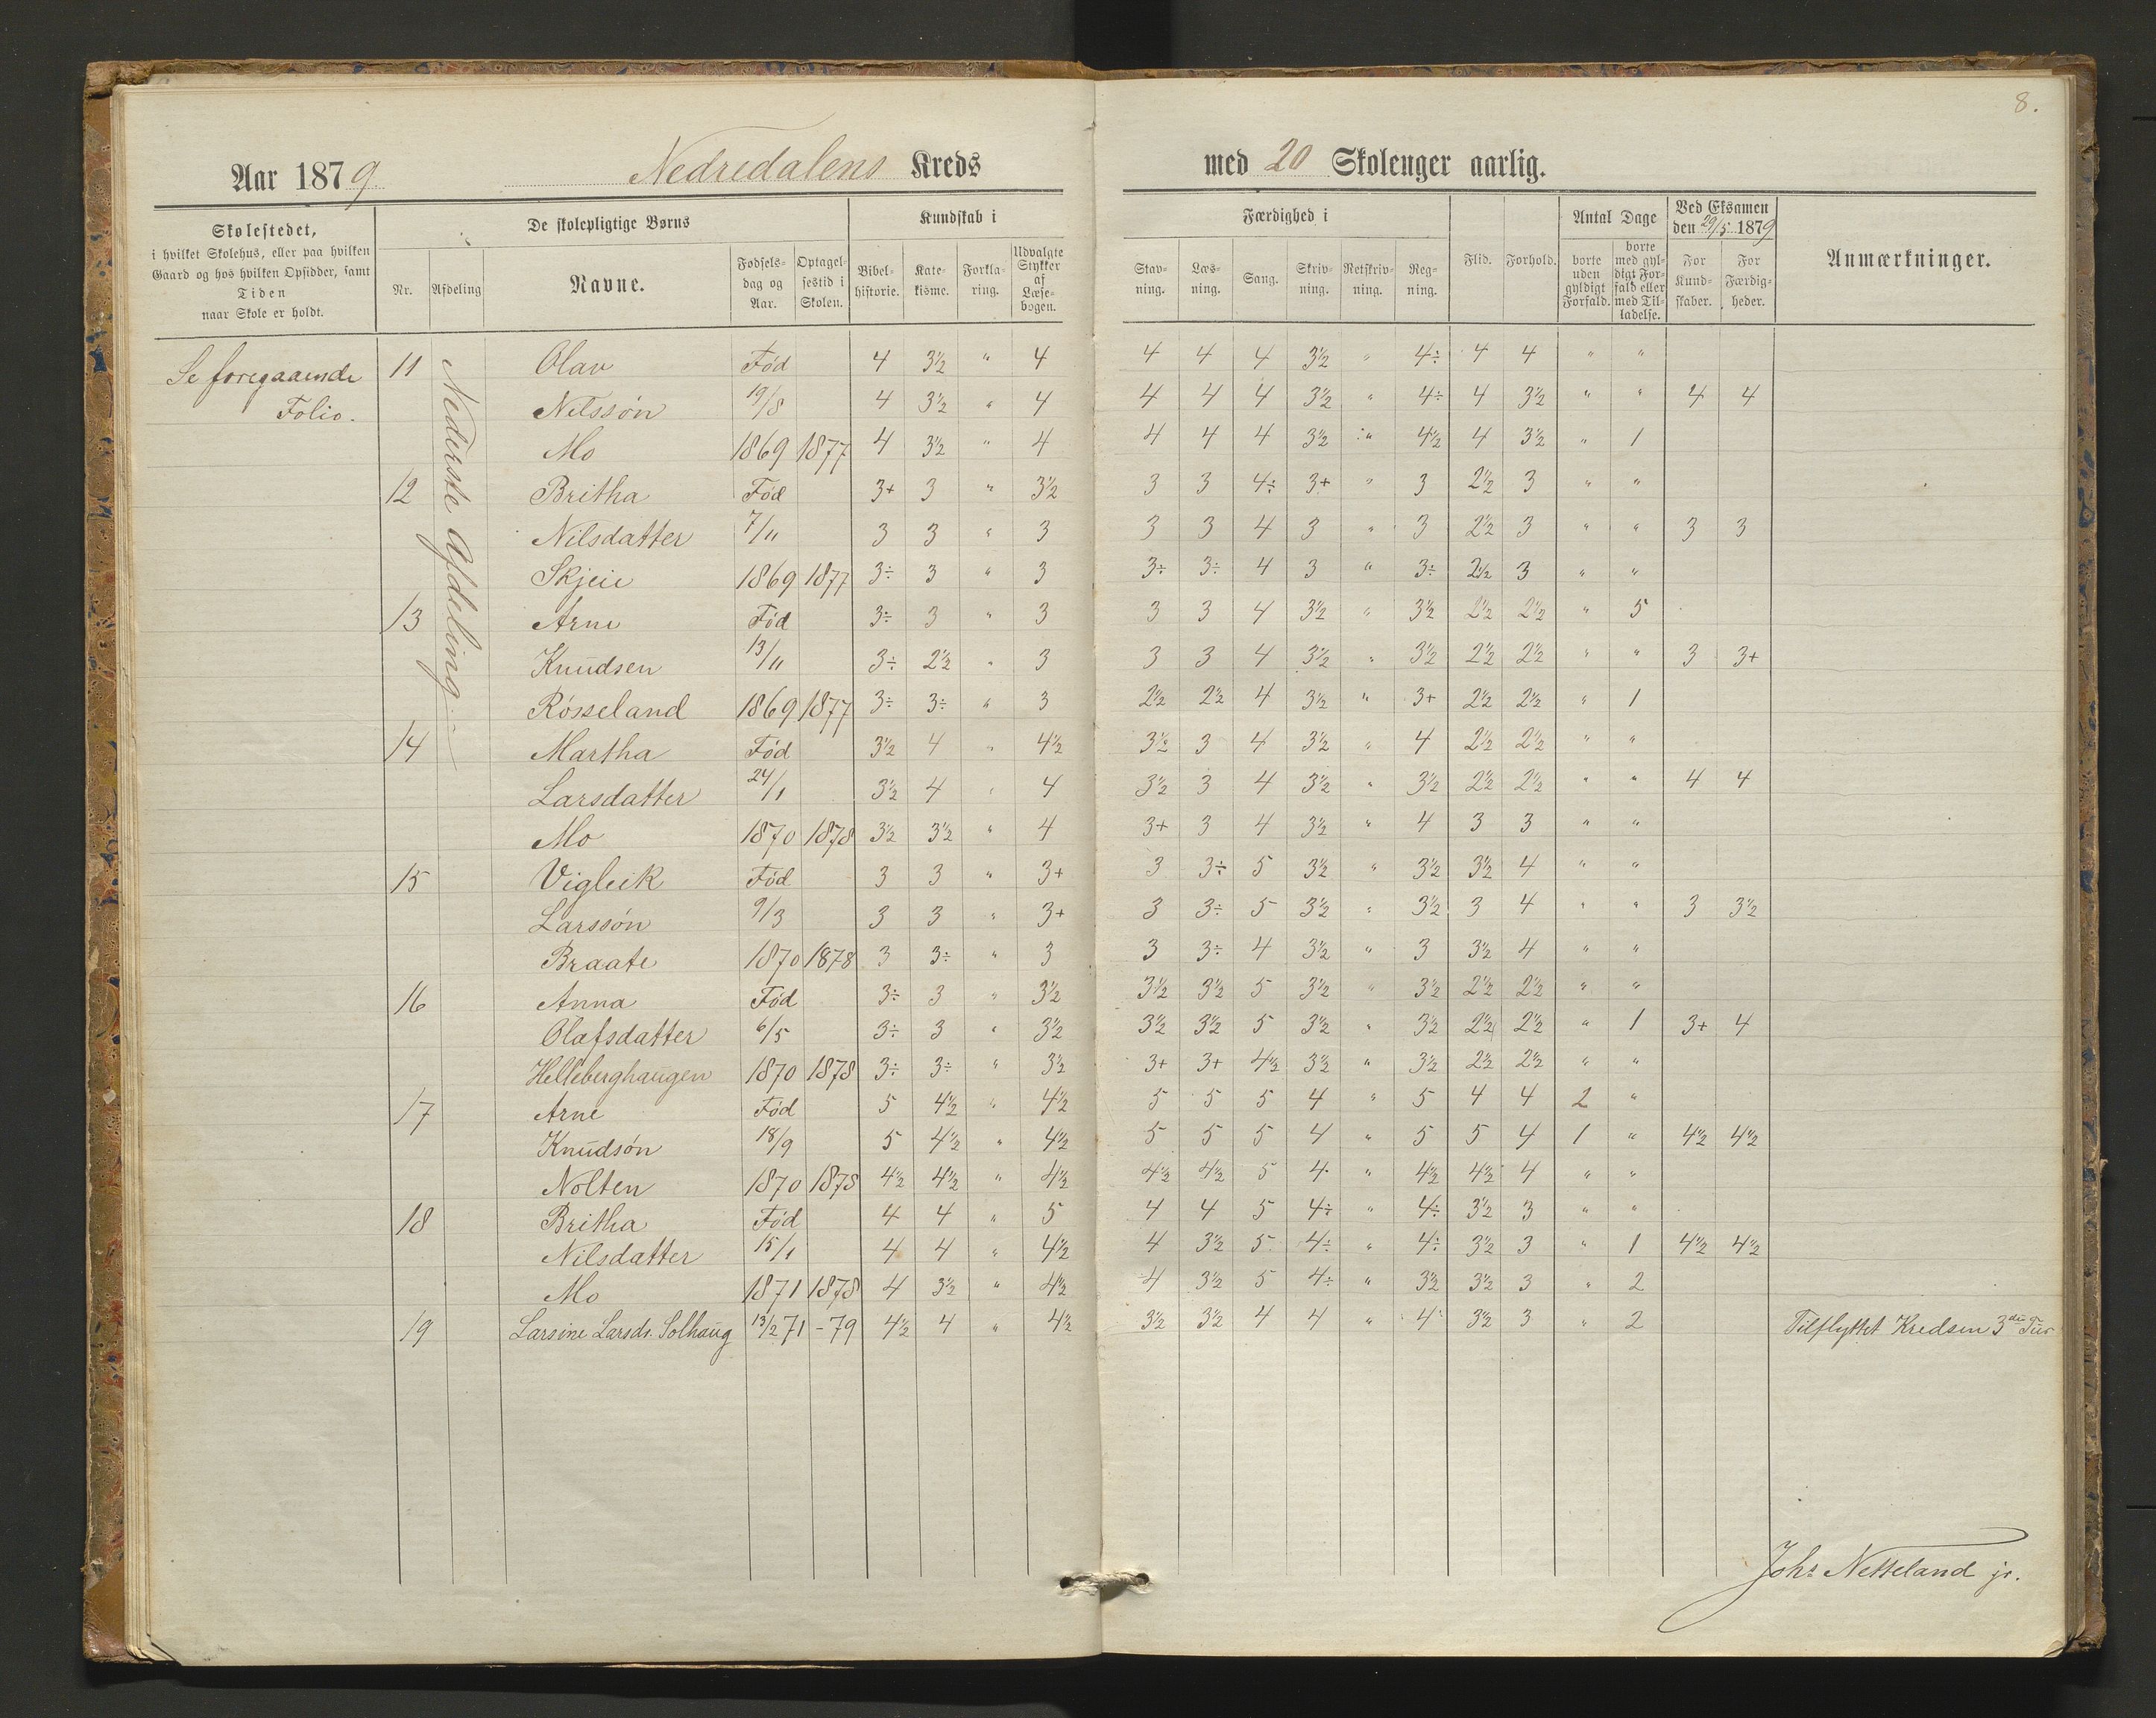 8.
Aar 1879 Nedredalens Kreds med 20 Skolenger aarlig.
Skolestedet, i hvilket Skolehus, eller paa hvilken Gaard og hos hvilken Opsidder, samt Tiden naar Skole er holdt.
De skolepligtige Børns
Nr. Afdeling Navne. Fødselsdag og Aar. Optagelsestid i Skolen.
Kundskab i
Bibelhistorie. Katekisme. Forklaring. Udvalgte Stykker af Læsebogen.
Færdighed i
Stavning. Læsning. Sang. Skrivning. Retskrivning. Regning. Flid. Forhold.
Antal Dage
borte uden gyldigt Forfald. borte med gyldigt Forfald eller med Tilladelse.
Ved Eksamen den 29/5 1879
For Kundskaber. For Færdigheder.
Anmærkninger.
Se foregaaende
Folio.
Nederste Afdeling.
11 Olav Fød 4 3½ " 4 4 4 4 3½ " 4÷ 4 4 " "
Nilssøn 19/8 4 3½ " 4 4 4 4 3½ " 4÷ 4 3½ " " 4 4
Mo 1869 1877 4 3½ " 4 4 4 4 3½ " 4½ 4 3½ " 1
12 Britha Fød 3+ 3 " 3½ 3 3 4÷ 3+ " 3 2½ 3 " "
Nilsdatter 7/11 3 3 " 3 3 3 4 3 " 3 2½ 3 " " 3 3
Skjeie 1869 1877 3÷ 3 " 3 3÷ 3÷ 4 3 " 3÷ 2½ 3 " "
13 Arne Fød 3÷ 3 " 3 3 3 4 3½ " 3½ 2½ 2½ " 5
Knudsen 13/11 3÷ 2½ " 3 3 3 4 3½ " 3½ 2½ 2½ " " 3 3+
Røsseland 1869 1877 3÷ 3÷ " 3 2½ 2½ 4 3½ " 3+ 2½ 2½ " 1
14 Martha Fød 3½ 4 " 4½ 3½ 3 4 3½ " 4 2½ 2½ " "
Larsdatter 24/1 3½ 4 " 4 3½ 3 4 3½ " 3½ 2½ 2½ " " 4 4
Mo 1870 1878 3½ 3½ " 4 3+ 3 4 3½ " 4 3 3 " "
15 Vigleik Fød 3 3 " 3+ 3 3÷ 5 3½ " 3½ 3½ 4 " "
Larssøn 9/3 3 3 " 3+ 3 3÷ 5 3½ " 3½ 3 4 " " 3 3½
Braate 1870 1878 3 3÷ " 3 3 3÷ 4 3½ " 3 3½ 4 " "
16 Anna Fød 3÷ 3 " 3½ 3½ 3½ 5 3½ " 3½ 2½ 2½ " "
Olafsdatter 6/5 3÷ 3 " 3½ 3½ 3½ 5 3½ " 3½ 2½ 2½ " 1 3+ 4
Helleberghaugen 1870 1878 3÷ 3÷ " 3½ 3+ 3+ 4½ 3½ " 3½ 2½ 2½ " "
17 Arne Fød 5 4½ " 4½ 5 5 5 4 " 5 4 4 2 "
Knudsøn 18/9 5 4½ " 4½ 5 5 5 4 " 5 5 4 1 " 4½ 4½
Nolten 1870 1878 4½ 4½ " 4½ 4½ 4½ 5 4 " 4½ 4½ 4 " "
18 Britha Fød 4 4 " 5 4 4 5 4÷ " 4÷ 3½ 3 " "
Nilsdatter 15/1 4 4 " 4½ 4 3½ 5 4÷ " 4÷ 3½ 3 " 1 4½ 4½
Mo 1871 1878 4 3½ " 4½ 4 3½ 5 4÷ " 3½ 3½ 3 " 2
19 Larsine Larsdr. Solhaug 13/2 71 -79 4½ 4 " 4½ 3½ 3½ 4 4 " 4÷ 3½ 3 " 2 Tilflyttet Kredsen 3die Tur
Johs Netteland jr.